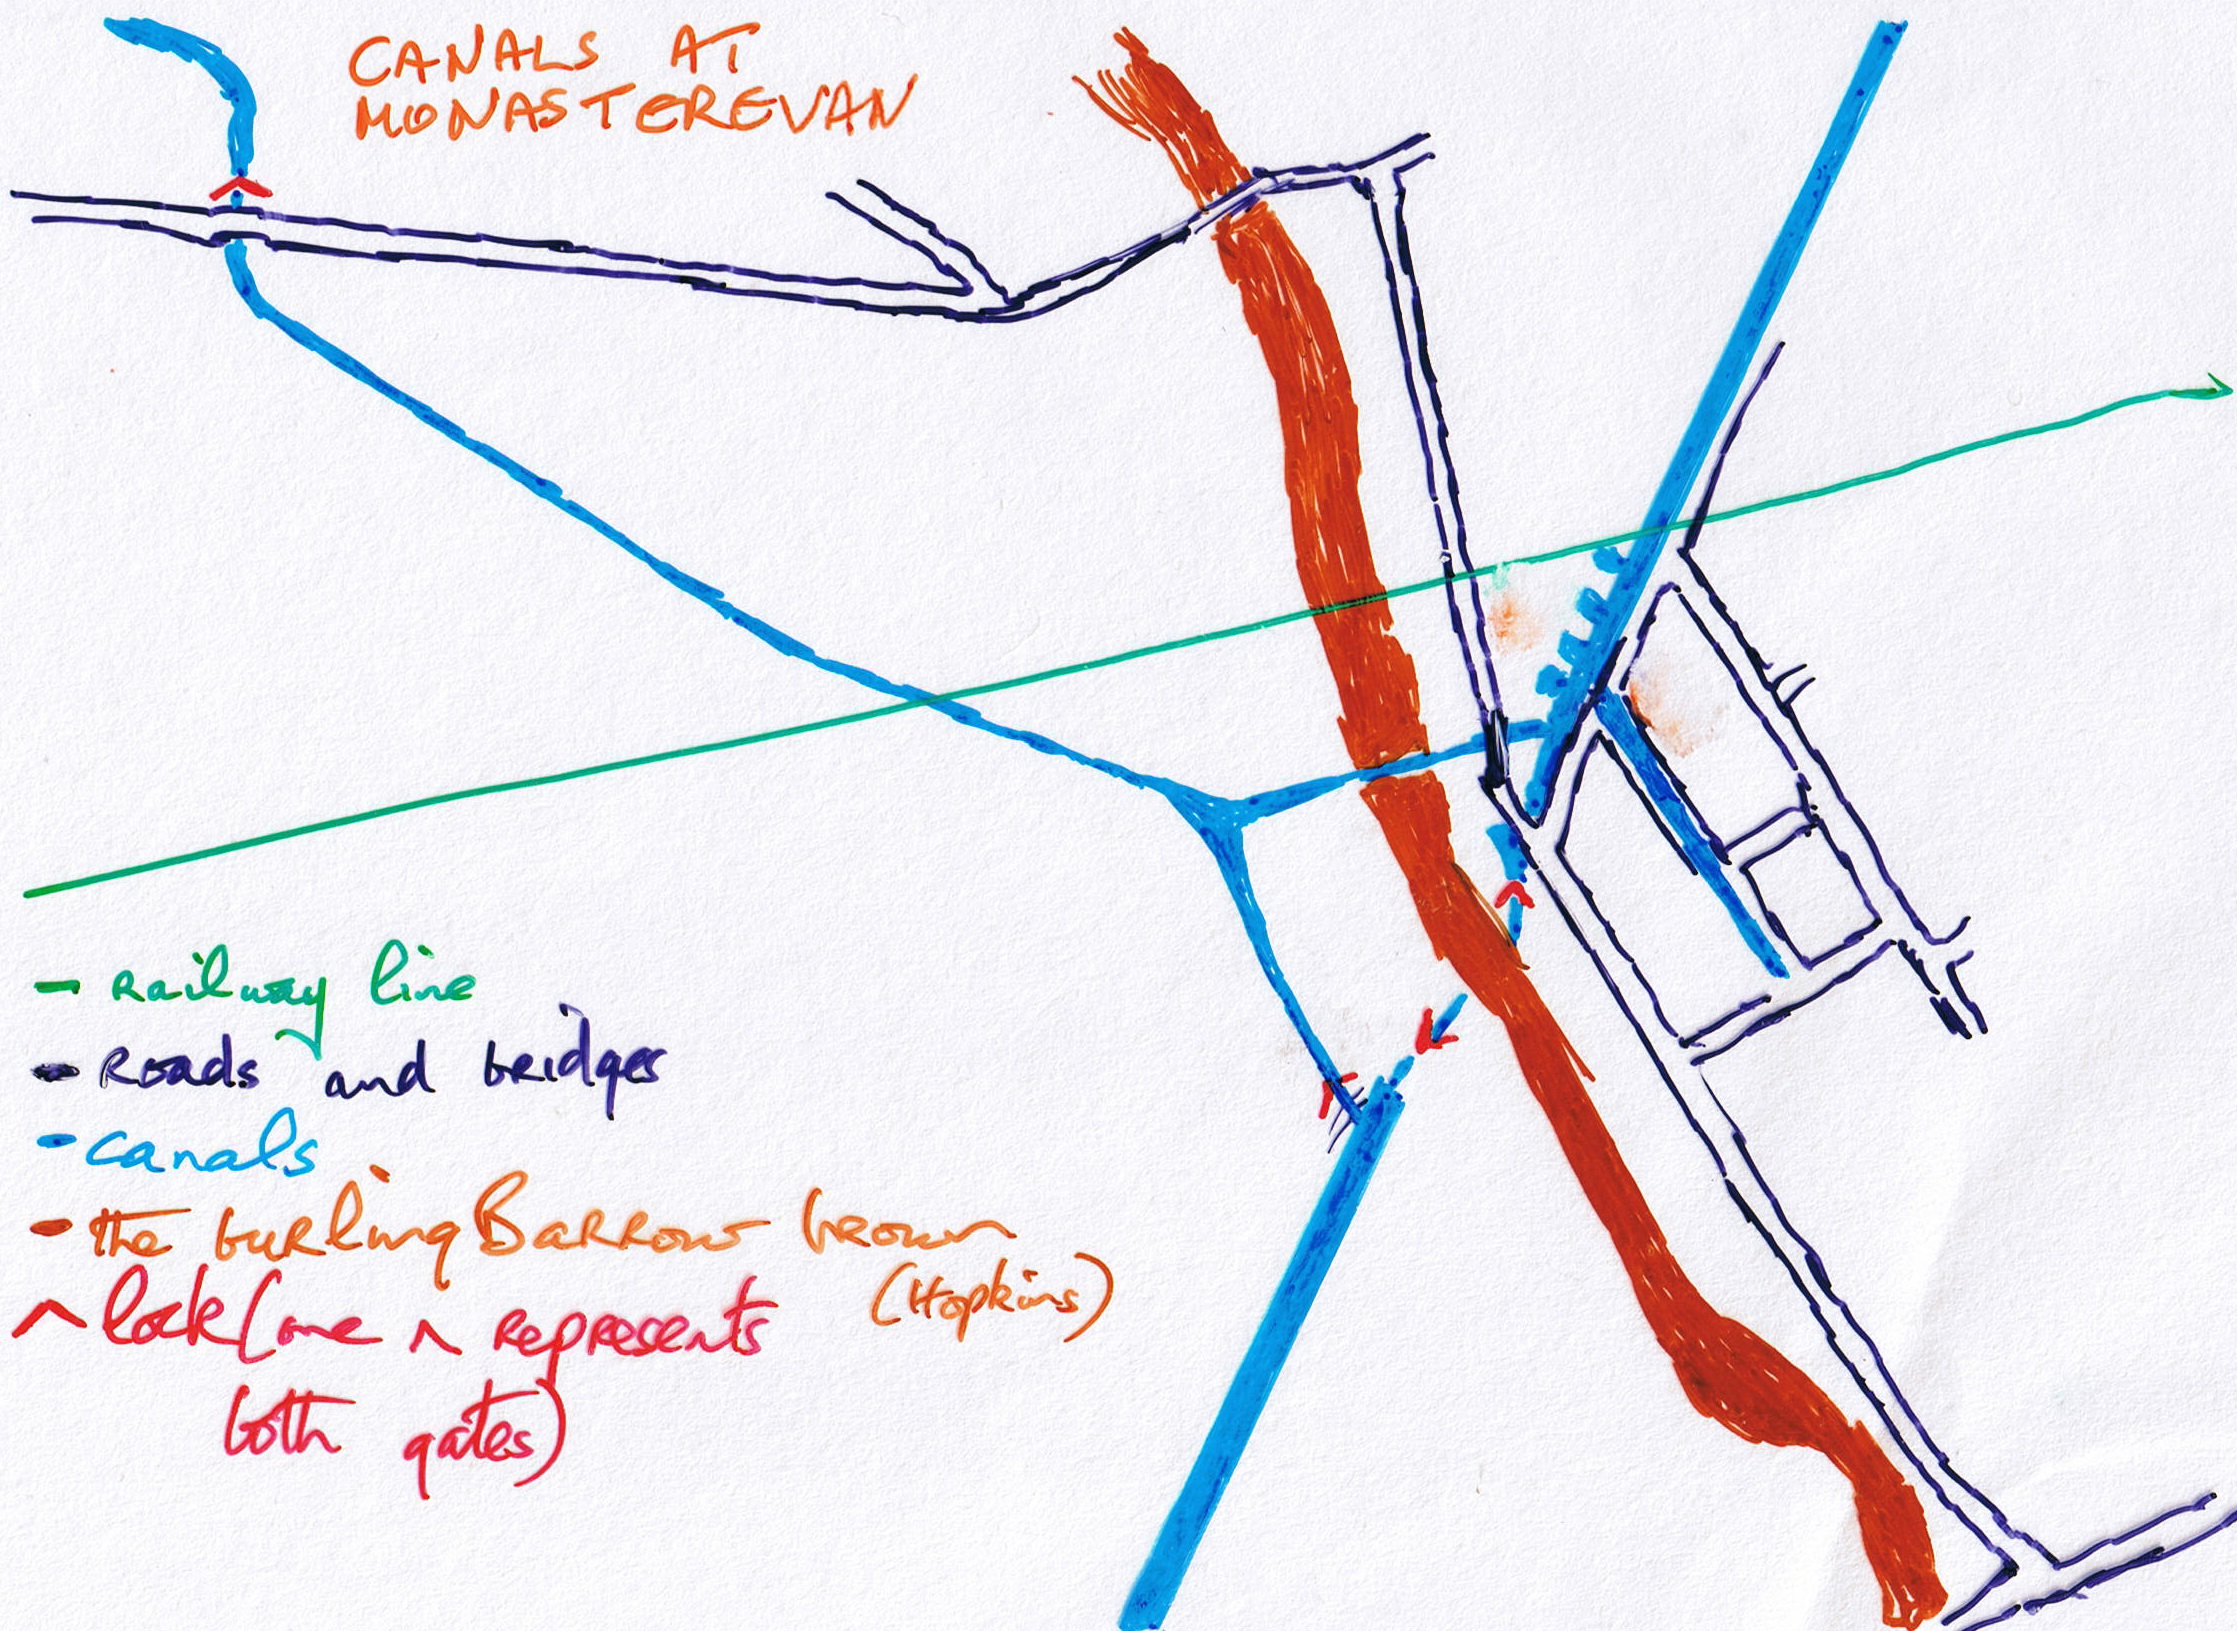 CANALS AT
MONASTEREVAN
- Railway line
- Roads and bridges
- canals
- the burling Barrow brown
(Hopkins)
^ lock (one ^ represents
both gates)